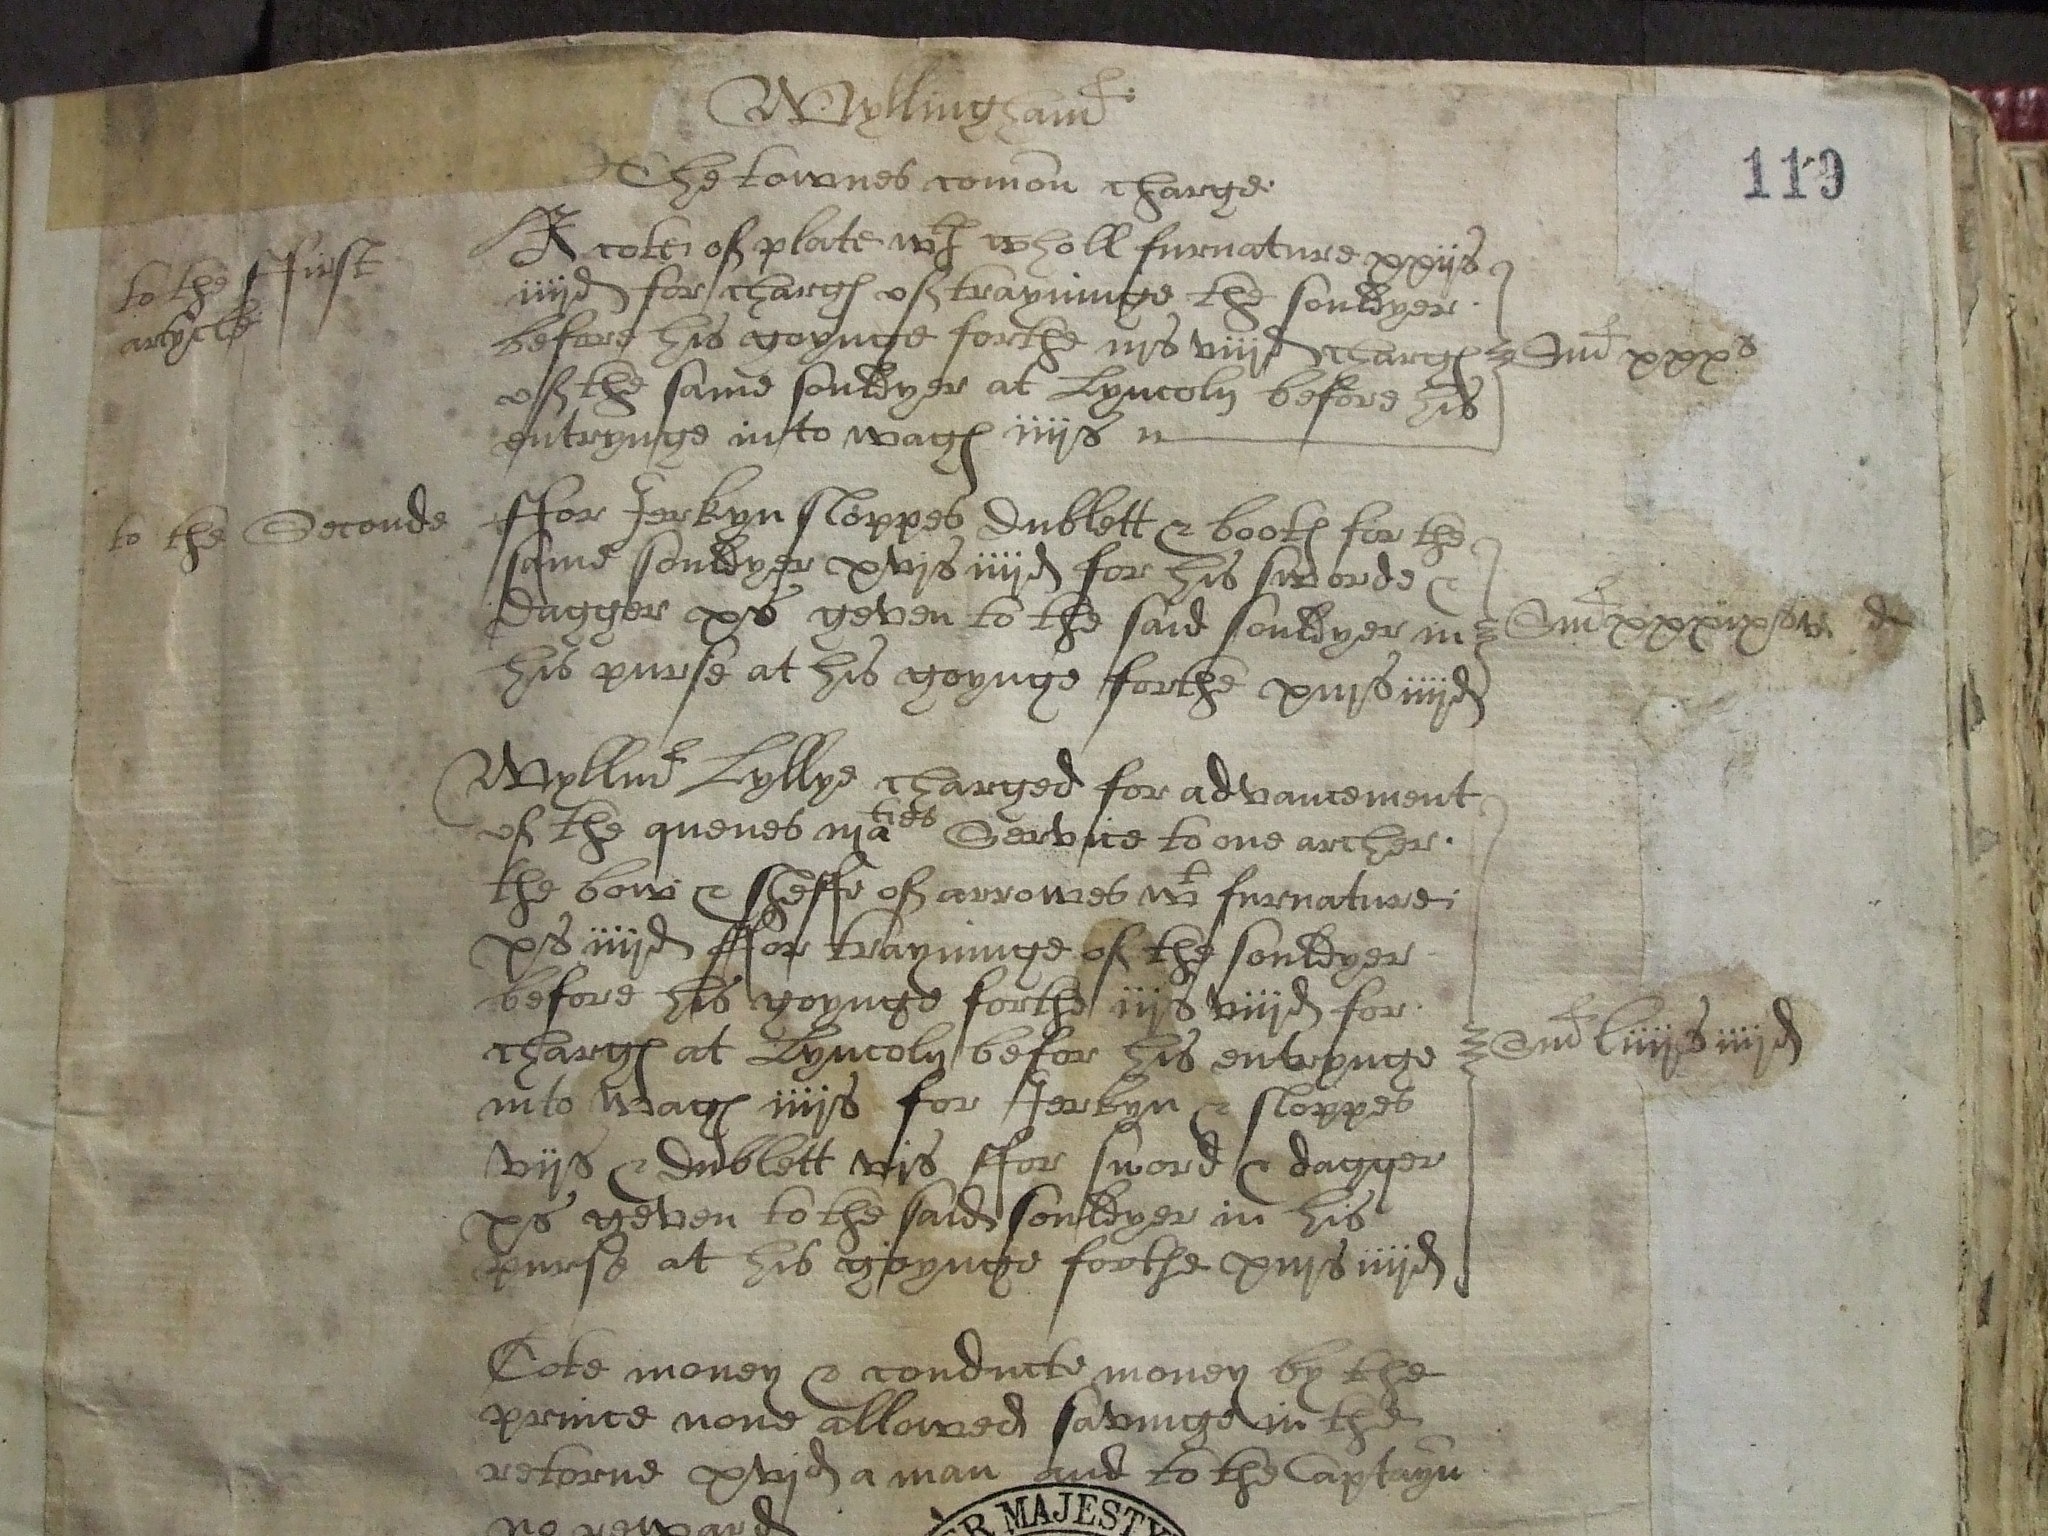 Wyllingham
119
The townes comon charge
to the ffirst
artycle
A cote of plate wth wholl furnature xxijs
iiijd for charg of trayninge the souldyer
before his goynge forthe iijs viijd charg
of the same souldyer at Lyncoln before his
entrynge into wag iiijs
Sma xxxs
to the Seconde
ffor Jerkyn sloppes dublett & boot for the
same souldyer xvjs iiijd for his sworde &
dagger xs geven to the said souldyer in
his purse at his goynge forthe xiijs iiijd
Sma xxxix
Wyllm Lyllye charged for advancement
of the quenes maties Service to one archer
the bow & sheffe of arrowes wt furnature
xs iiijd ffor trayninge of the souldyer
before his goynge forthe iijs viijd for
charg at Lyncoln befor his entrynge
into wag iiijs for Jerkyn & sloppes
vijs & dublett vjs ffor sword & dagger
xs geven to the said souldyer in his
purse at his goynge forthe xiijs iiijd
Sma liiijs iiijd
Cote money & conducte money by the
prince none allowed savinge in the
retorne xvjd a man and to the Captayn
no reward
ER MAJESTY